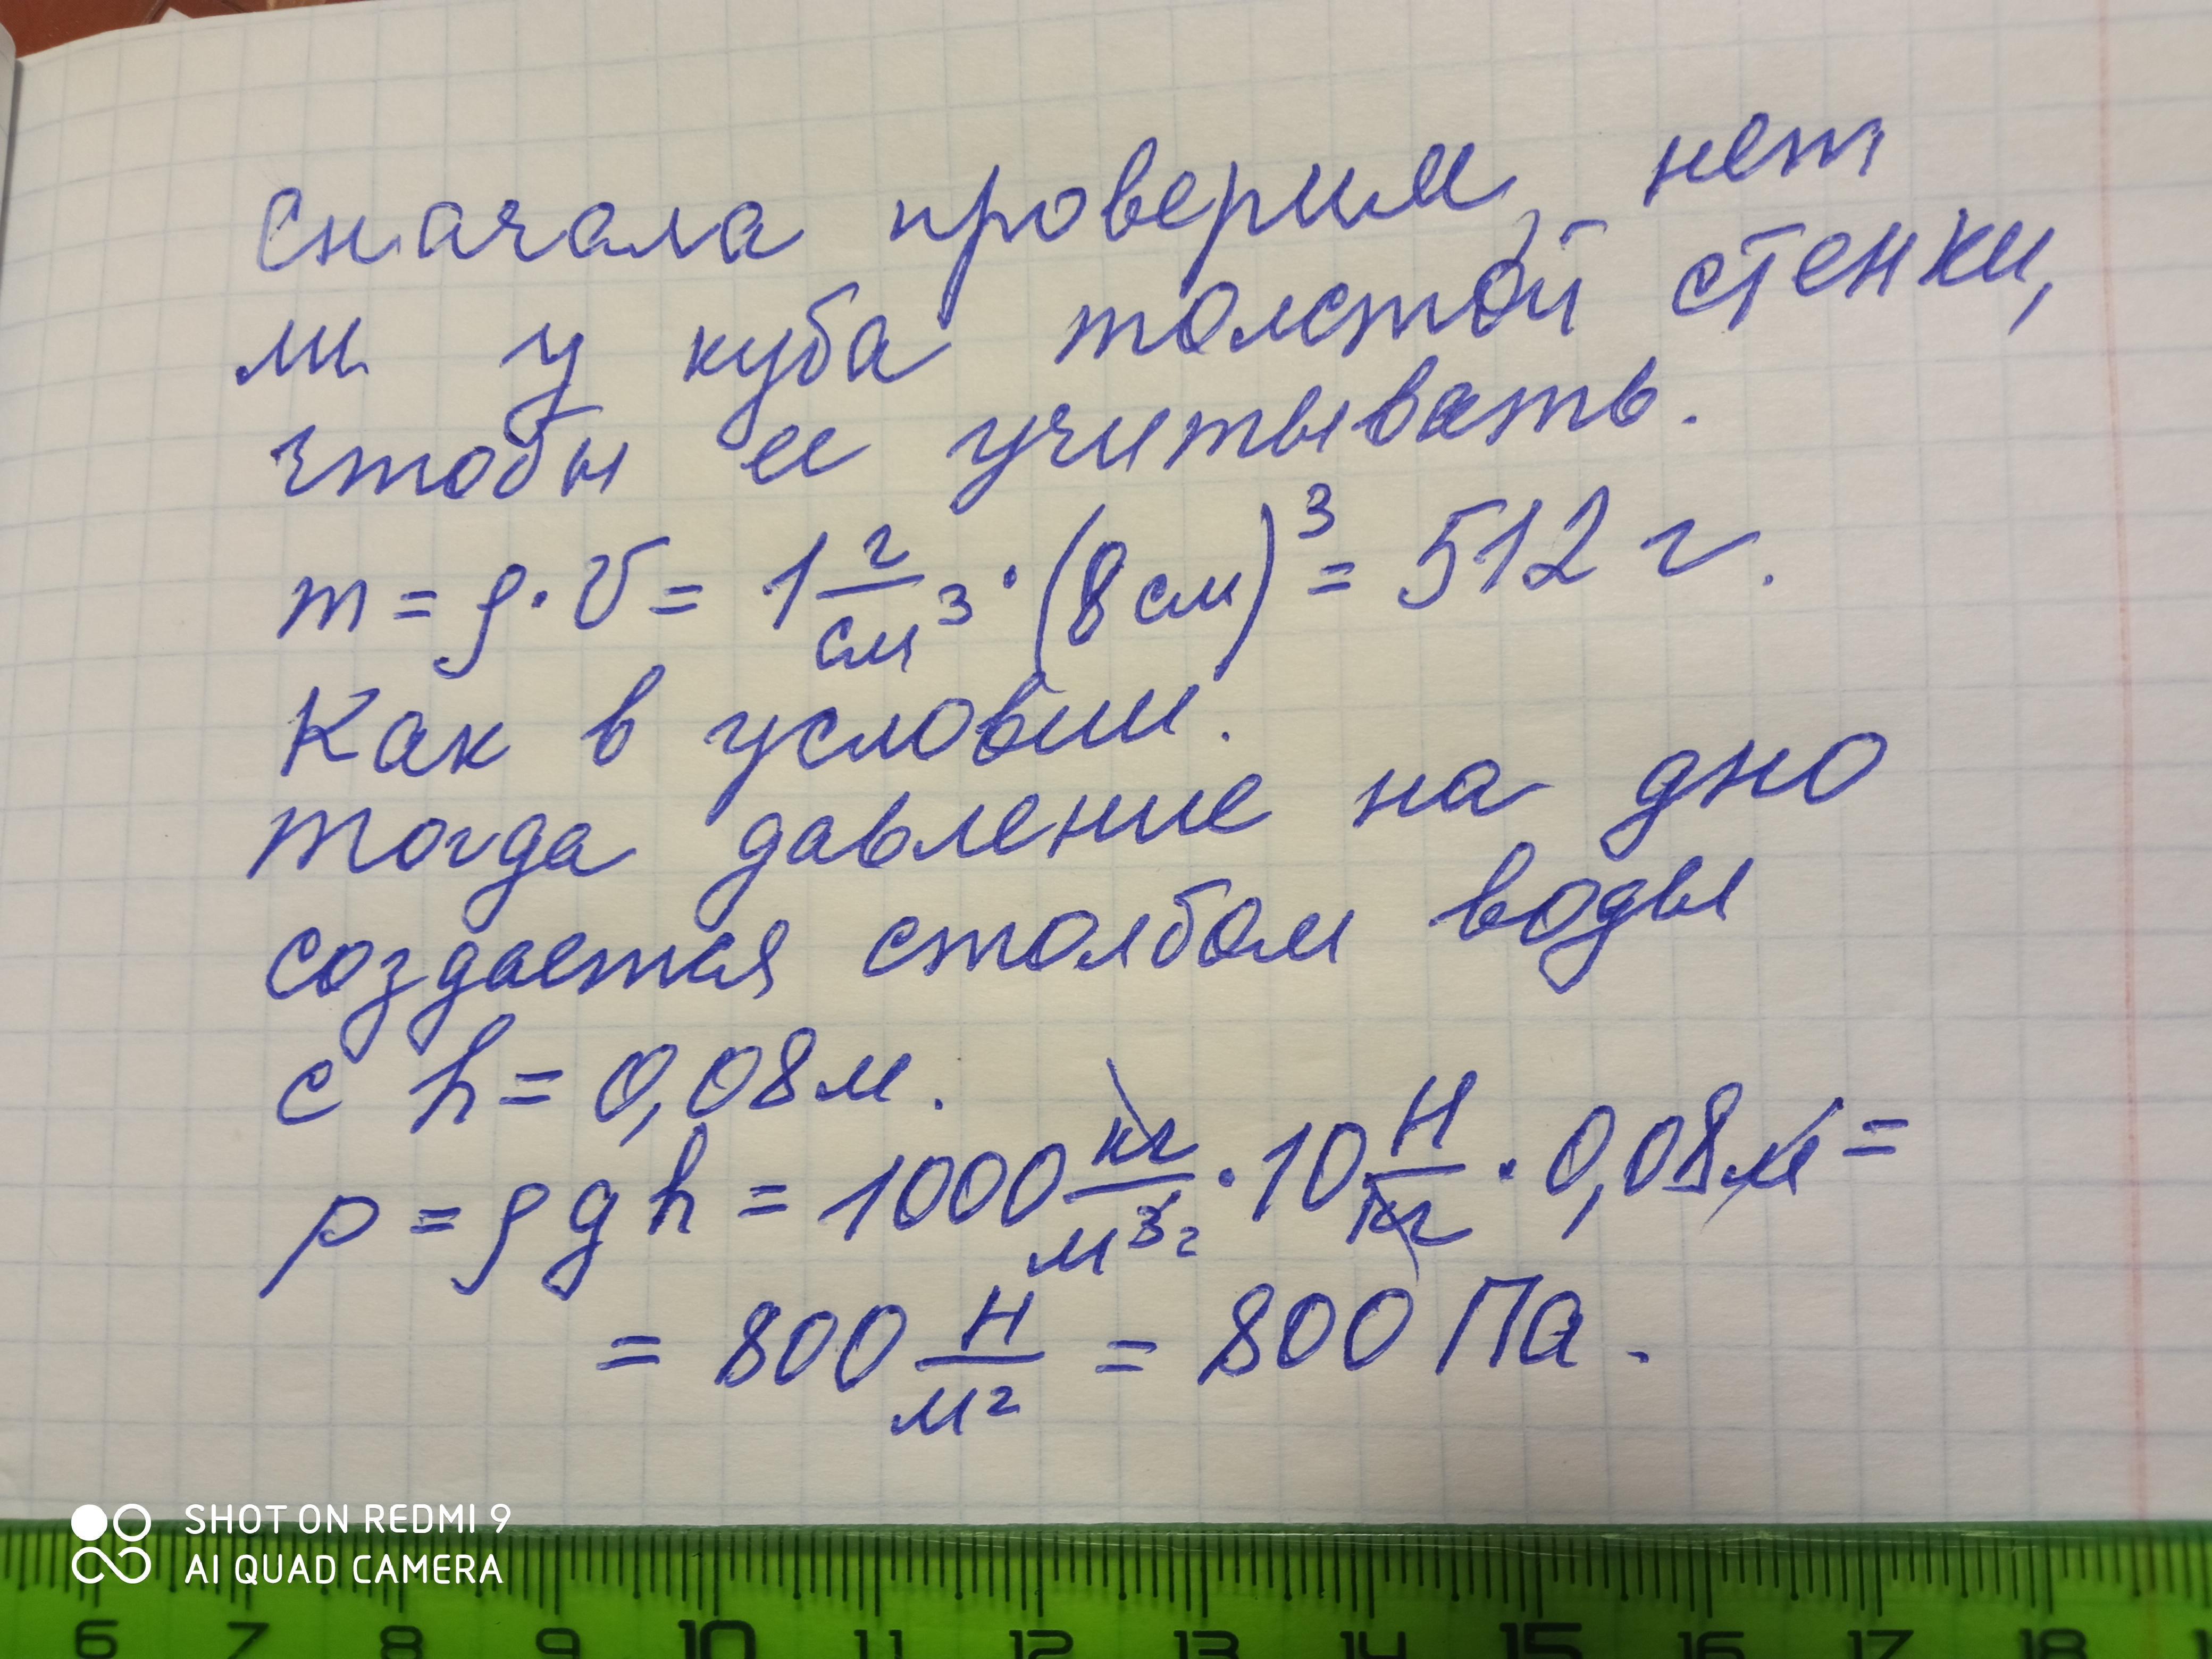 Сначала проверим, нет
ли у куба толстой стенки,
чтобы ее учитывать.
m = ρ·V = 1 г/см³ · (8 см)³ = 512 г.
Как в условии.
Тогда давление на дно
создается столбом воды
с h = 0,08 м.
p = ρgh = 1000 кг/м³ ² · 10 Н/кг · 0,08 м =
= 800 Н/м² = 800 Па.
SHOT ON REDMI 9
AI QUAD CAMERA
6 7 8 9 10 11 12 13 14 15 16 17 18